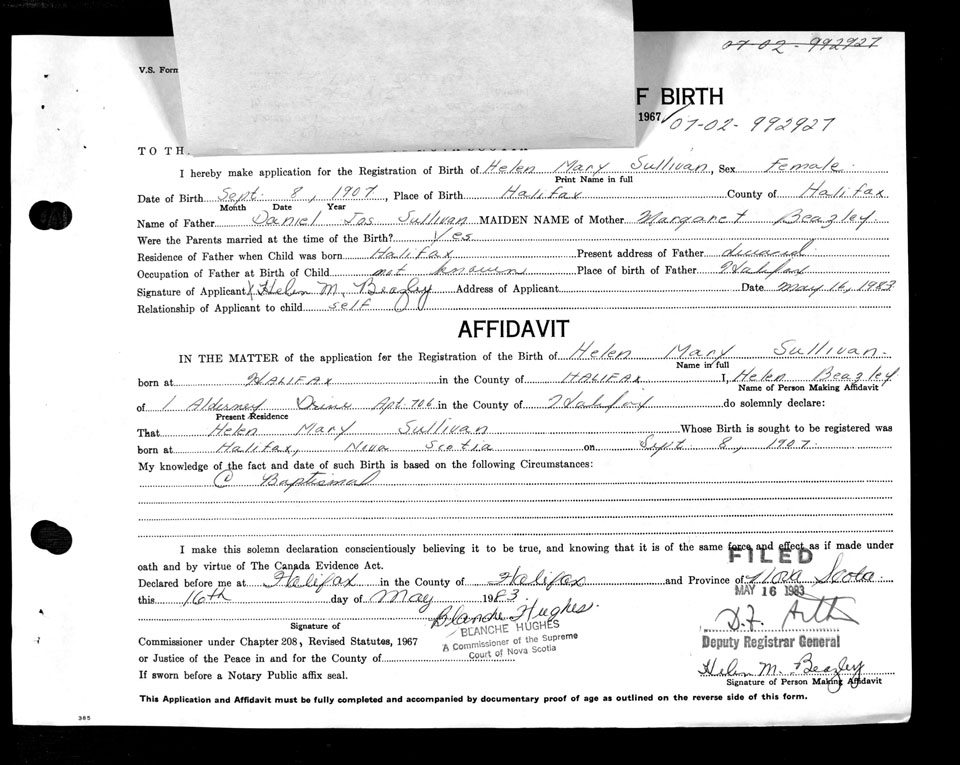 07-02-992927
V.S. Form
F BIRTH
1967
07-02-992927
TO TH
I hereby make application for the Registration of Birth of Helen Mary Sullivan, Sex Female
Print Name in full
Date of Birth Sept. 8, 1907, Place of Birth Halifax County of Halifax
Month Date Year
Name of Father Daniel Jos Sullivan MAIDEN NAME of Mother Margaret Beazley
Were the Parents married at the time of the Birth? Yes
Residence of Father when Child was born Halifax Present address of Father
Occupation of Father at Birth of Child not known Place of birth of Father Halifax
Signature of Applicant X Helen M. Beazley Address of Applicant Date May 16, 1983
Relationship of Applicant to child self
AFFIDAVIT
IN THE MATTER of the application for the Registration of the Birth of Helen Mary Sullivan.
Name in full
born at HALIFAX in the County of HALIFAX I, Helen Beazley
Name of Person Making Affidavit
of 1 Alderney Drive Apt 706 in the County of Halifax do solemnly declare:
Present Residence
That Helen Mary Sullivan Whose Birth is sought to be registered was
born at Halifax, Nova Scotia on Sept. 8, 1907.
My knowledge of the fact and date of such Birth is based on the following Circumstances:
C Baptismal
I make this solemn declaration conscientiously believing it to be true, and knowing that it is of the same force and effect as if made under
oath and by virtue of The Canada Evidence Act.
FILED
Declared before me at Halifax in the County of Halifax and Province of Nova Scotia.
this 16th day of May 1983.
MAY 16 1983
Blanche Hughes.
Signature of
BLANCHE HUGHES
A Commissioner of the Supreme
Court of Nova Scotia
Deputy Registrar General
Commissioner under Chapter 208, Revised Statutes, 1967
or Justice of the Peace in and for the County of
Helen M. Beazley
Signature of Person Making Affidavit
If sworn before a Notary Public affix seal.
This Application and Affidavit must be fully completed and accompanied by documentary proof of age as outlined on the reverse side of this form.
385